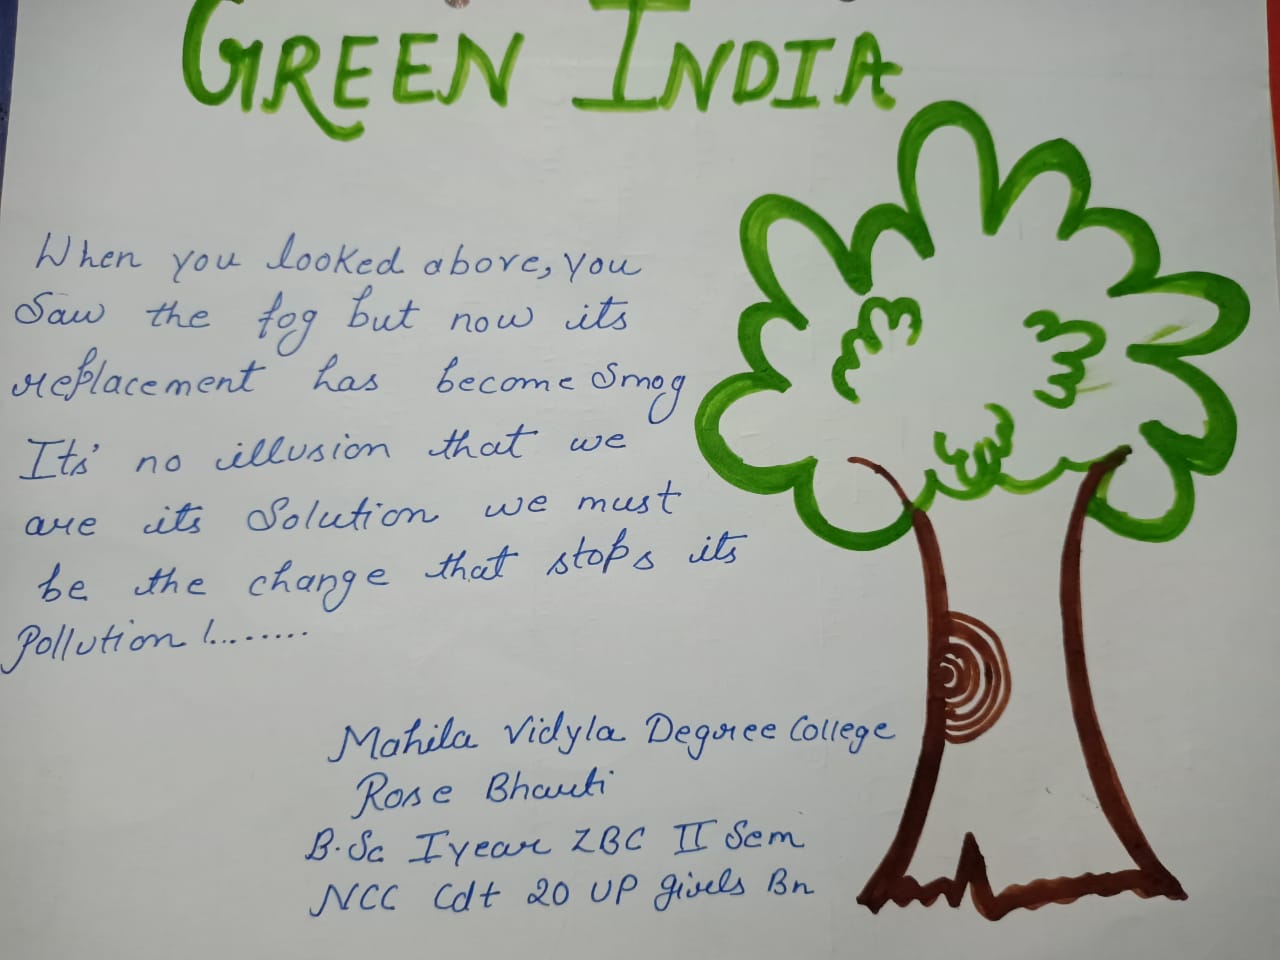 GREEN INDIA
When you looked above, you
Saw the fog but now its
replacement has become Smog
Its' no illusion that we
are its Solution we must
be the change that stops its
Pollution !........
Mahila Vidyla Degree College
Rose Bharti
B.Sc I year ZBC II Sem
NCC Cdt 20 UP girls Bn